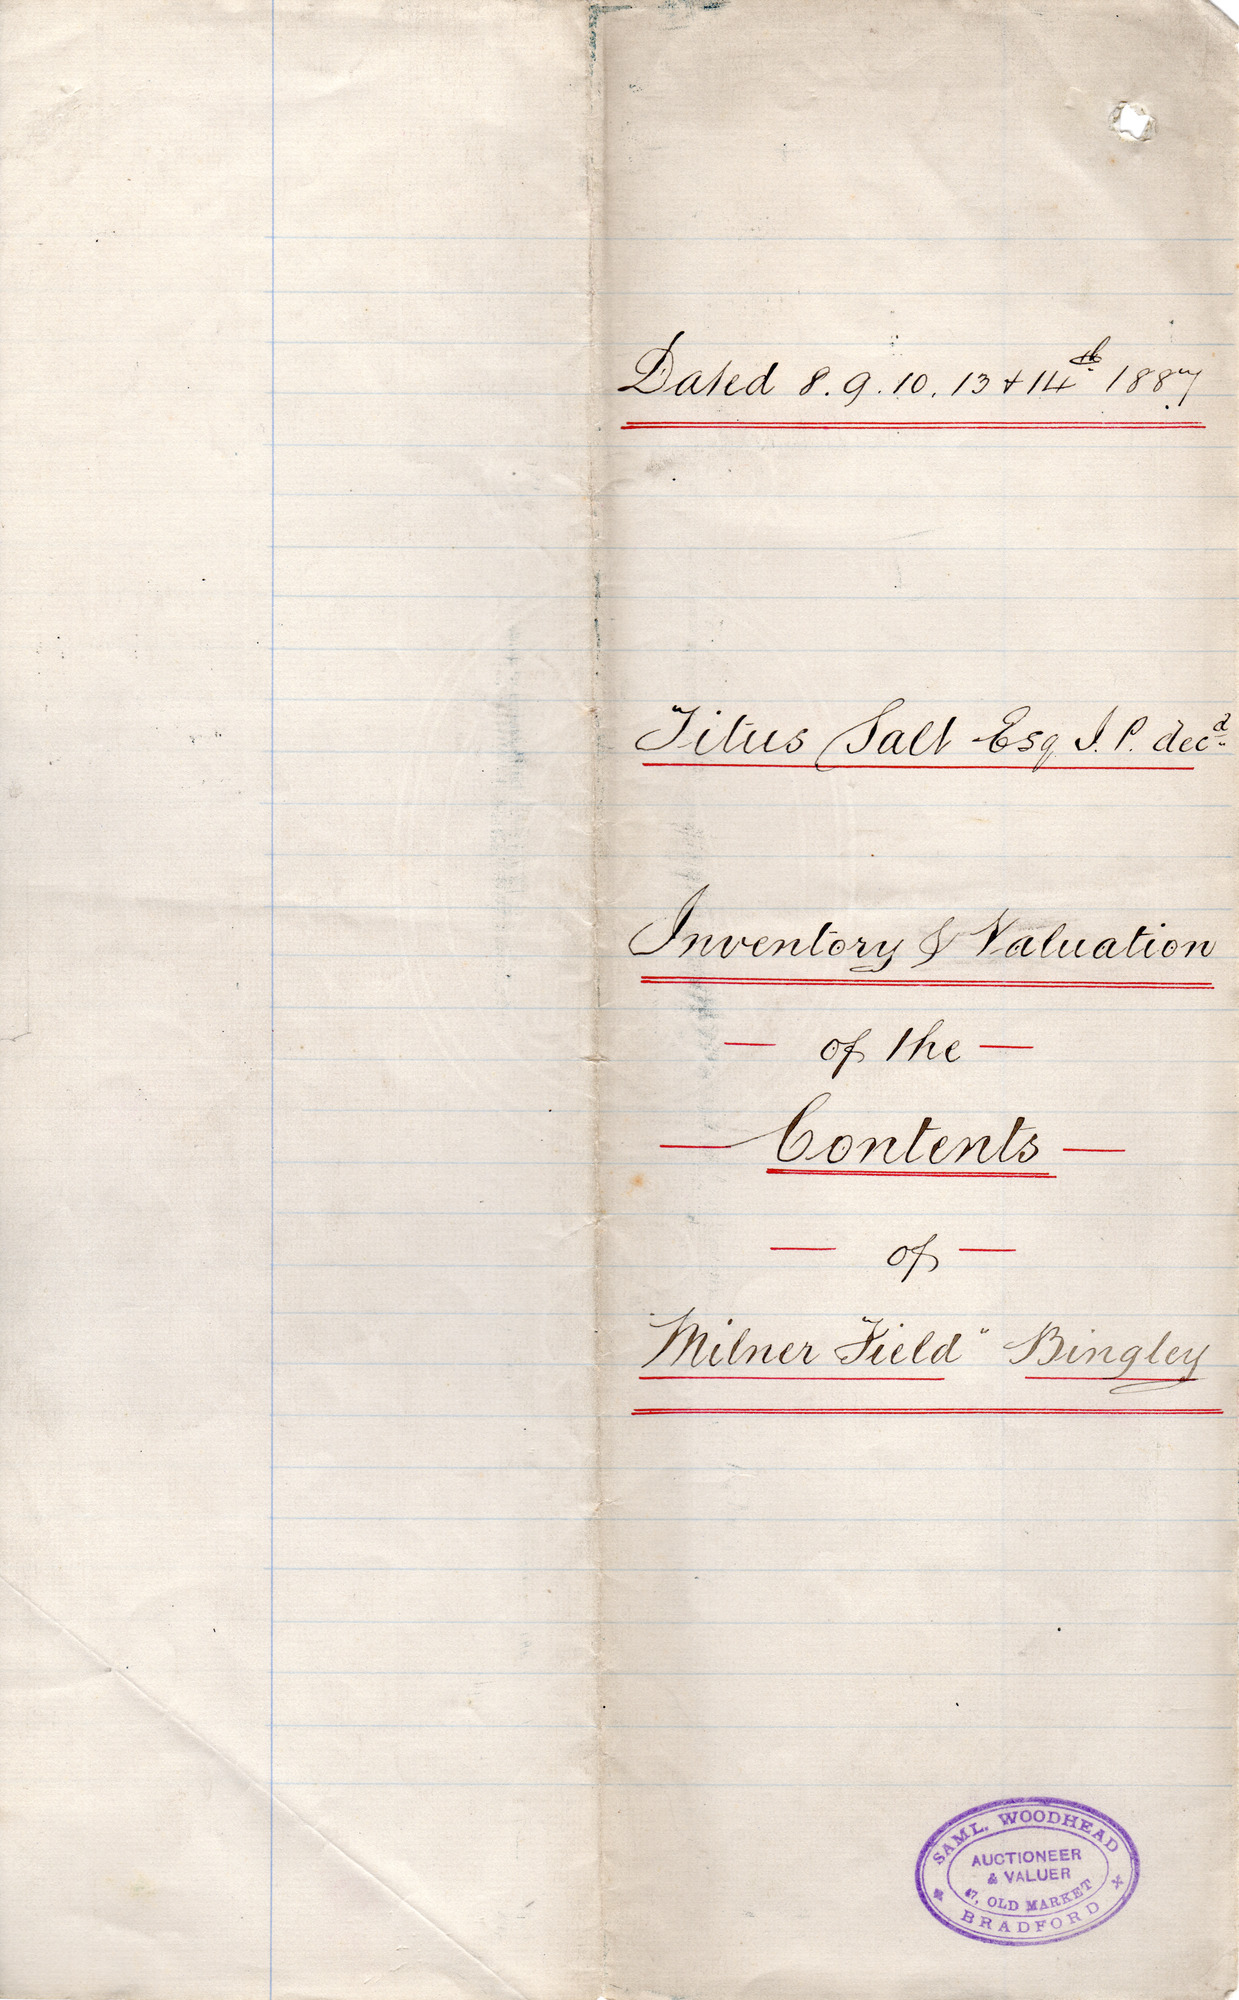 Dated 8. 9. 10. 13 & 14th 1887
Titus Salt Esq J. P. decd.
Inventory & Valuation
— of the —
— Contents —
— of —
"Milner Field" Bingley
SAML. WOODHEAD
AUCTIONEER
& VALUER
47, OLD MARKET
BRADFORD